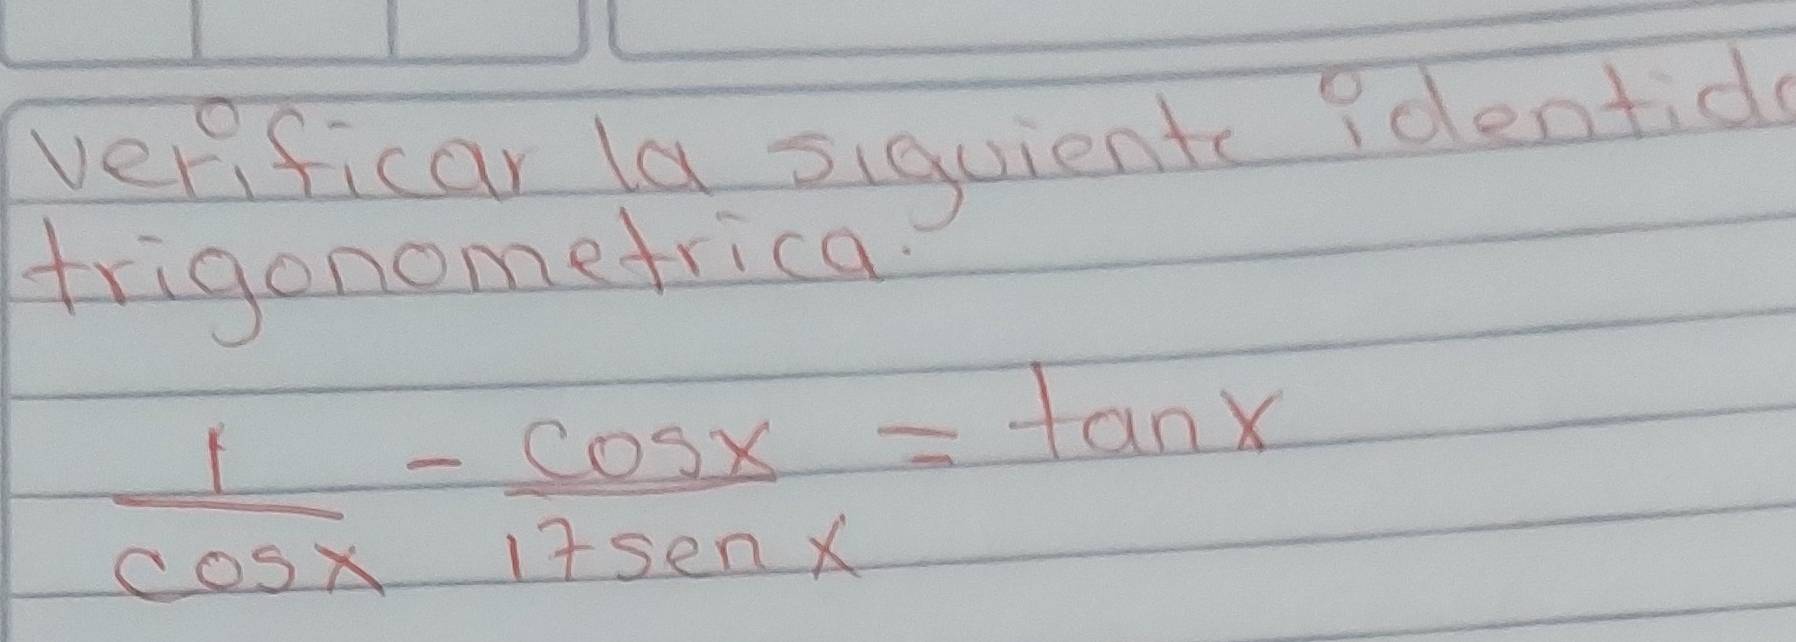 verificar la siguiente identida
trigonometrica.
1/cosx - cosx/1+senx = tanx